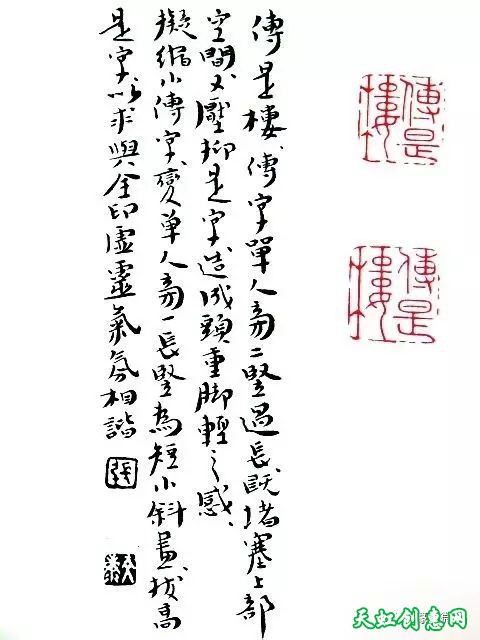 傳是樓、傳字單人旁二竪過長、既堵塞上部
空間又壓抑是字、造成頭重脚輕之感、
擬縮小傳字、變单人旁一長竪為短小斜畫、拔高
是字、以求與全印虛靈氣氛相諧
張
傳是
樓
傳是
樓
天虹创意网